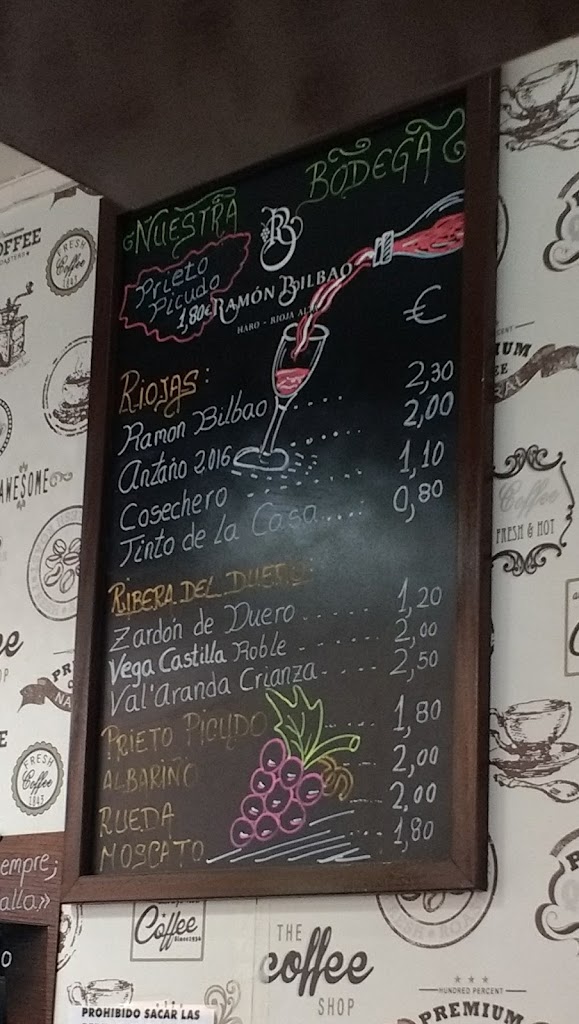 NUESTRA BODEGA
Prieto
Picudo
1,80€
RB
RAMÓN BILBAO
HARO - RIOJA
€
RIOJAS:
Ramon Bilbao ..... 2,30
Antaño 2.016 ...... 2,00
Cosechero ........ 1,10
Tinto de la Casa .... 0,80
RIBERA DEL DUERO:
Zardón de Duero ....... 1,20
Vega Castilla Roble ...... 2,00
Val'Aranda Crianza ..... 2,50
PRIETO PICUDO ..... 1,80
ALBARIÑO ..... 2,00
RUEDA ..... 2,00
MOSCATO 1,80
FRESH
Coffee
1843
AWESOME
FRESH
Coffee
1843
Coffee
FRESH & HOT
Coffee
Since
THE
coffee
SHOP
HUNDRED PERCENT
PREMIUM
PROHIBIDO SACAR LAS